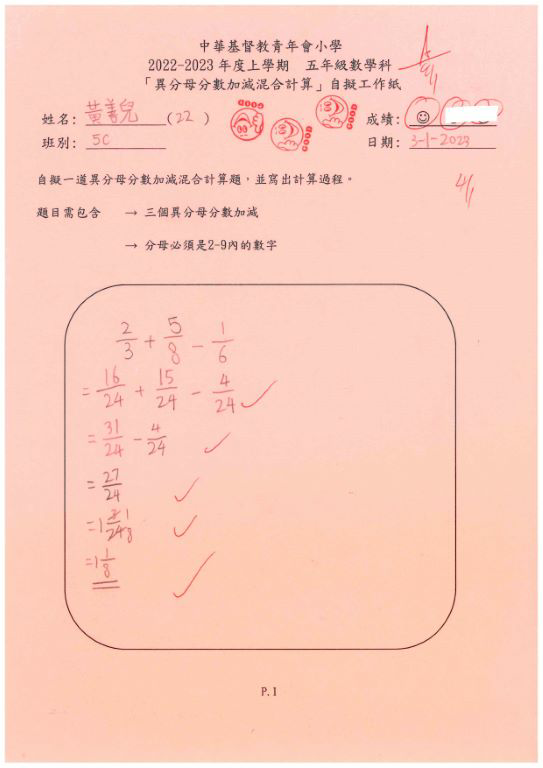 中華基督教青年會小學
2022-2023 年度上學期　五年級數學科
「異分母分數加減混合計算」自擬工作紙
姓名: 黃善兒 (22)
成績: ☺
班別: 5C
日期: 3-1-2023
GOOD
GOOD
GOOD
4/1
自擬一道異分母分數加減混合計算題，並寫出計算過程。
4/1
題目需包含　→ 三個異分母分數加減
→ 分母必須是2-9內的數字
2/3 + 5/8 - 1/6
= 16/24 + 15/24 - 4/24 ✓
= 31/24 - 4/24 ✓
= 27/24 ✓
= 1 3/24 1/8 ✓
= 1 1/8 ✓
P.1